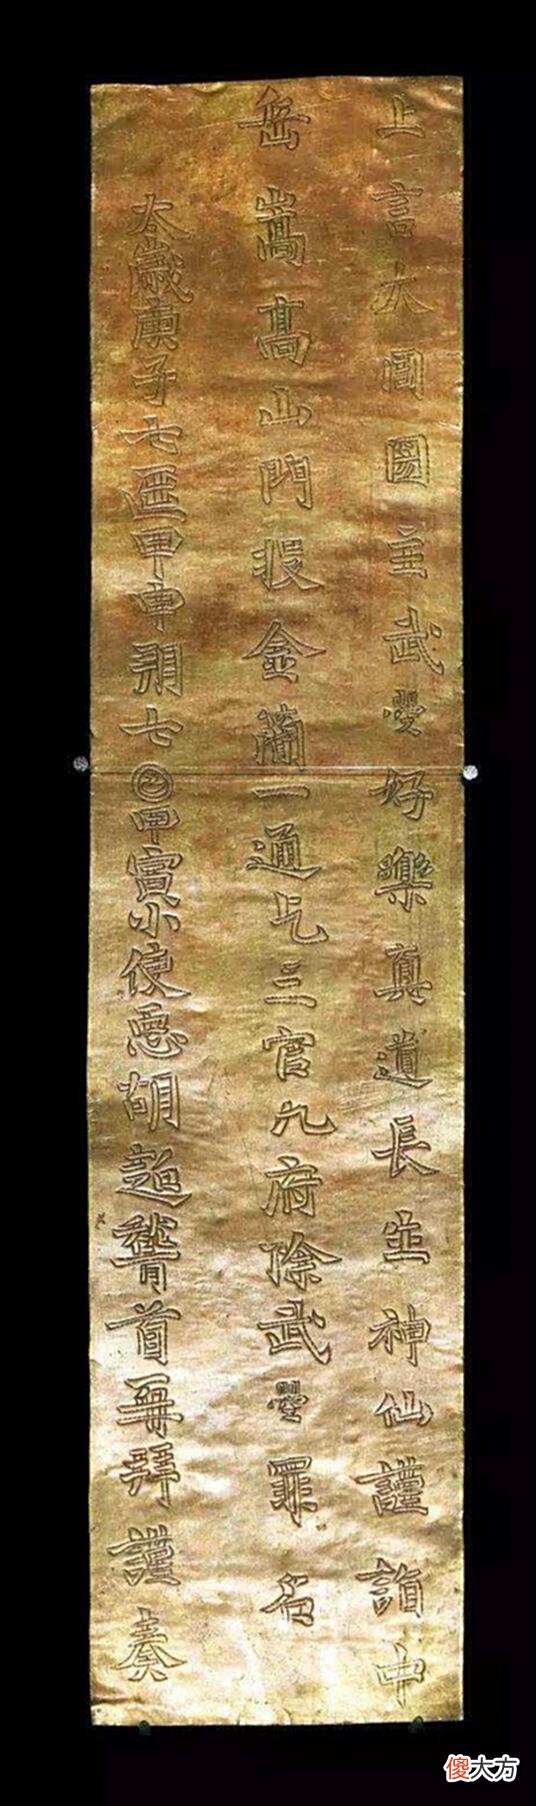 上言大周圀主武曌好樂真道長生神仙謹詣中
岳嵩高山門投金簡一通乞三官九府除武曌罪名
太歲庚子七𠥱甲申朔七𡆠甲寅小使𢘑胡超稽首再拜謹奏
傻大方